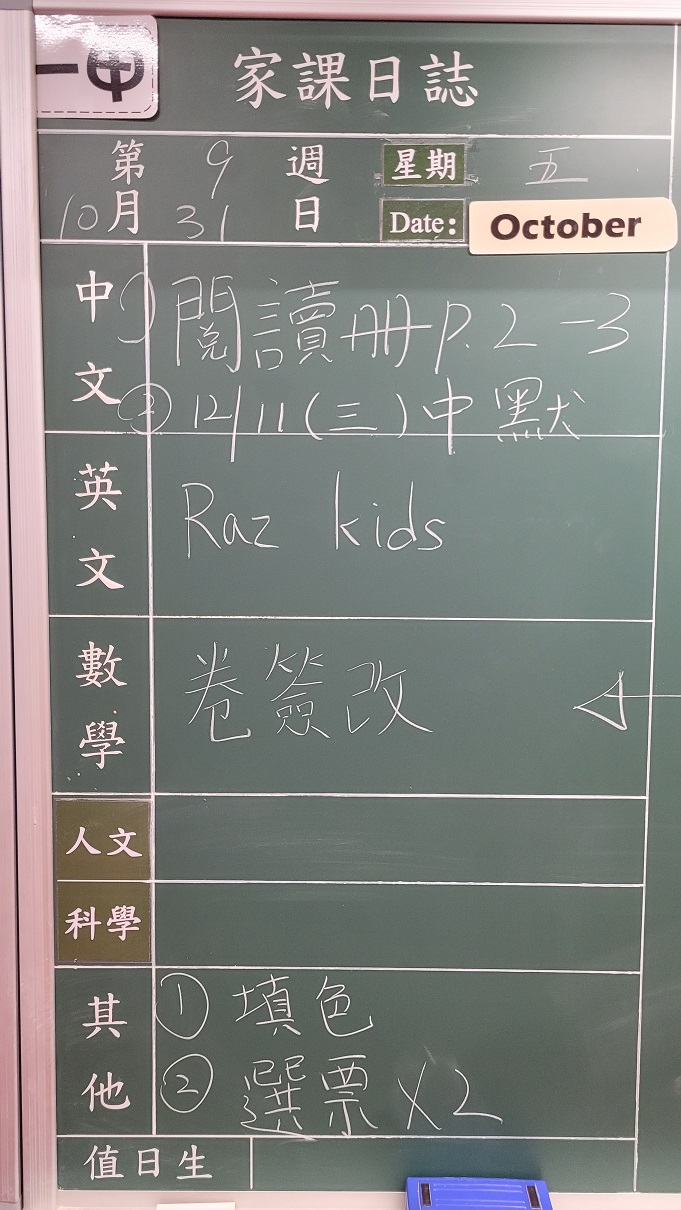 一甲
家課日誌
第 9 週 星期 五
10月 31 日 Date: October
中文 ① 閱讀冊 P.2-3
② 12/11(三)中默
英文 Raz kids
數學 卷簽改
人文
科學
其他 ① 填色
② 選票 X2
值日生